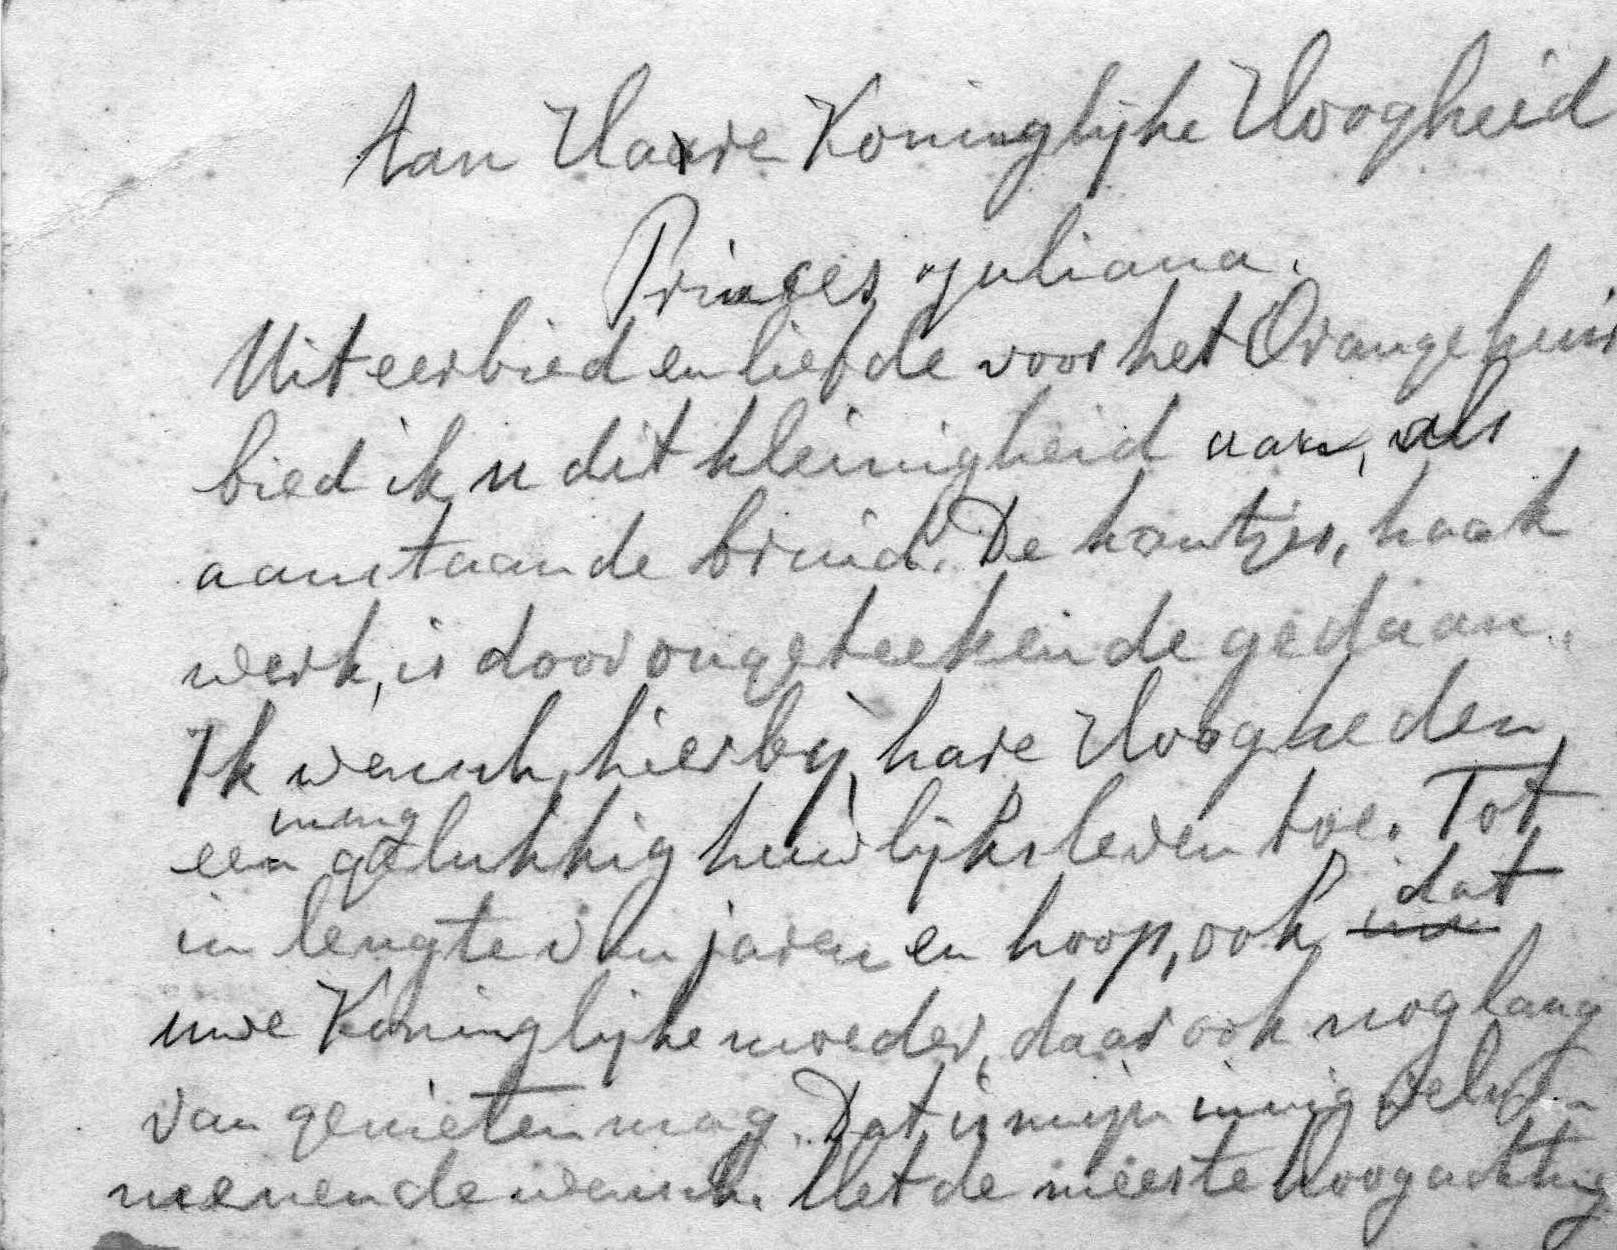 Aan Hare Koninglijke Hoogheid
Princes Juliana.
Uit eerbied en liefde voor het Orangehuis
bied ik u dit kleinigheid aan, als
aanstaande bruid. De kantjes, haak
werk, is door ongeteekende gedaan.
Ik wensch, hierbij, hare Hoogheden
innig
een gelukkig huwlijksleven toe. Tot
dat
in lengte van jaren en hoop, ook
uwe Koninglijke moeder, daar ook nog lang
van genieten mag. Dat is mijn innig
meenende wensch. Met de meeste Hoogachting